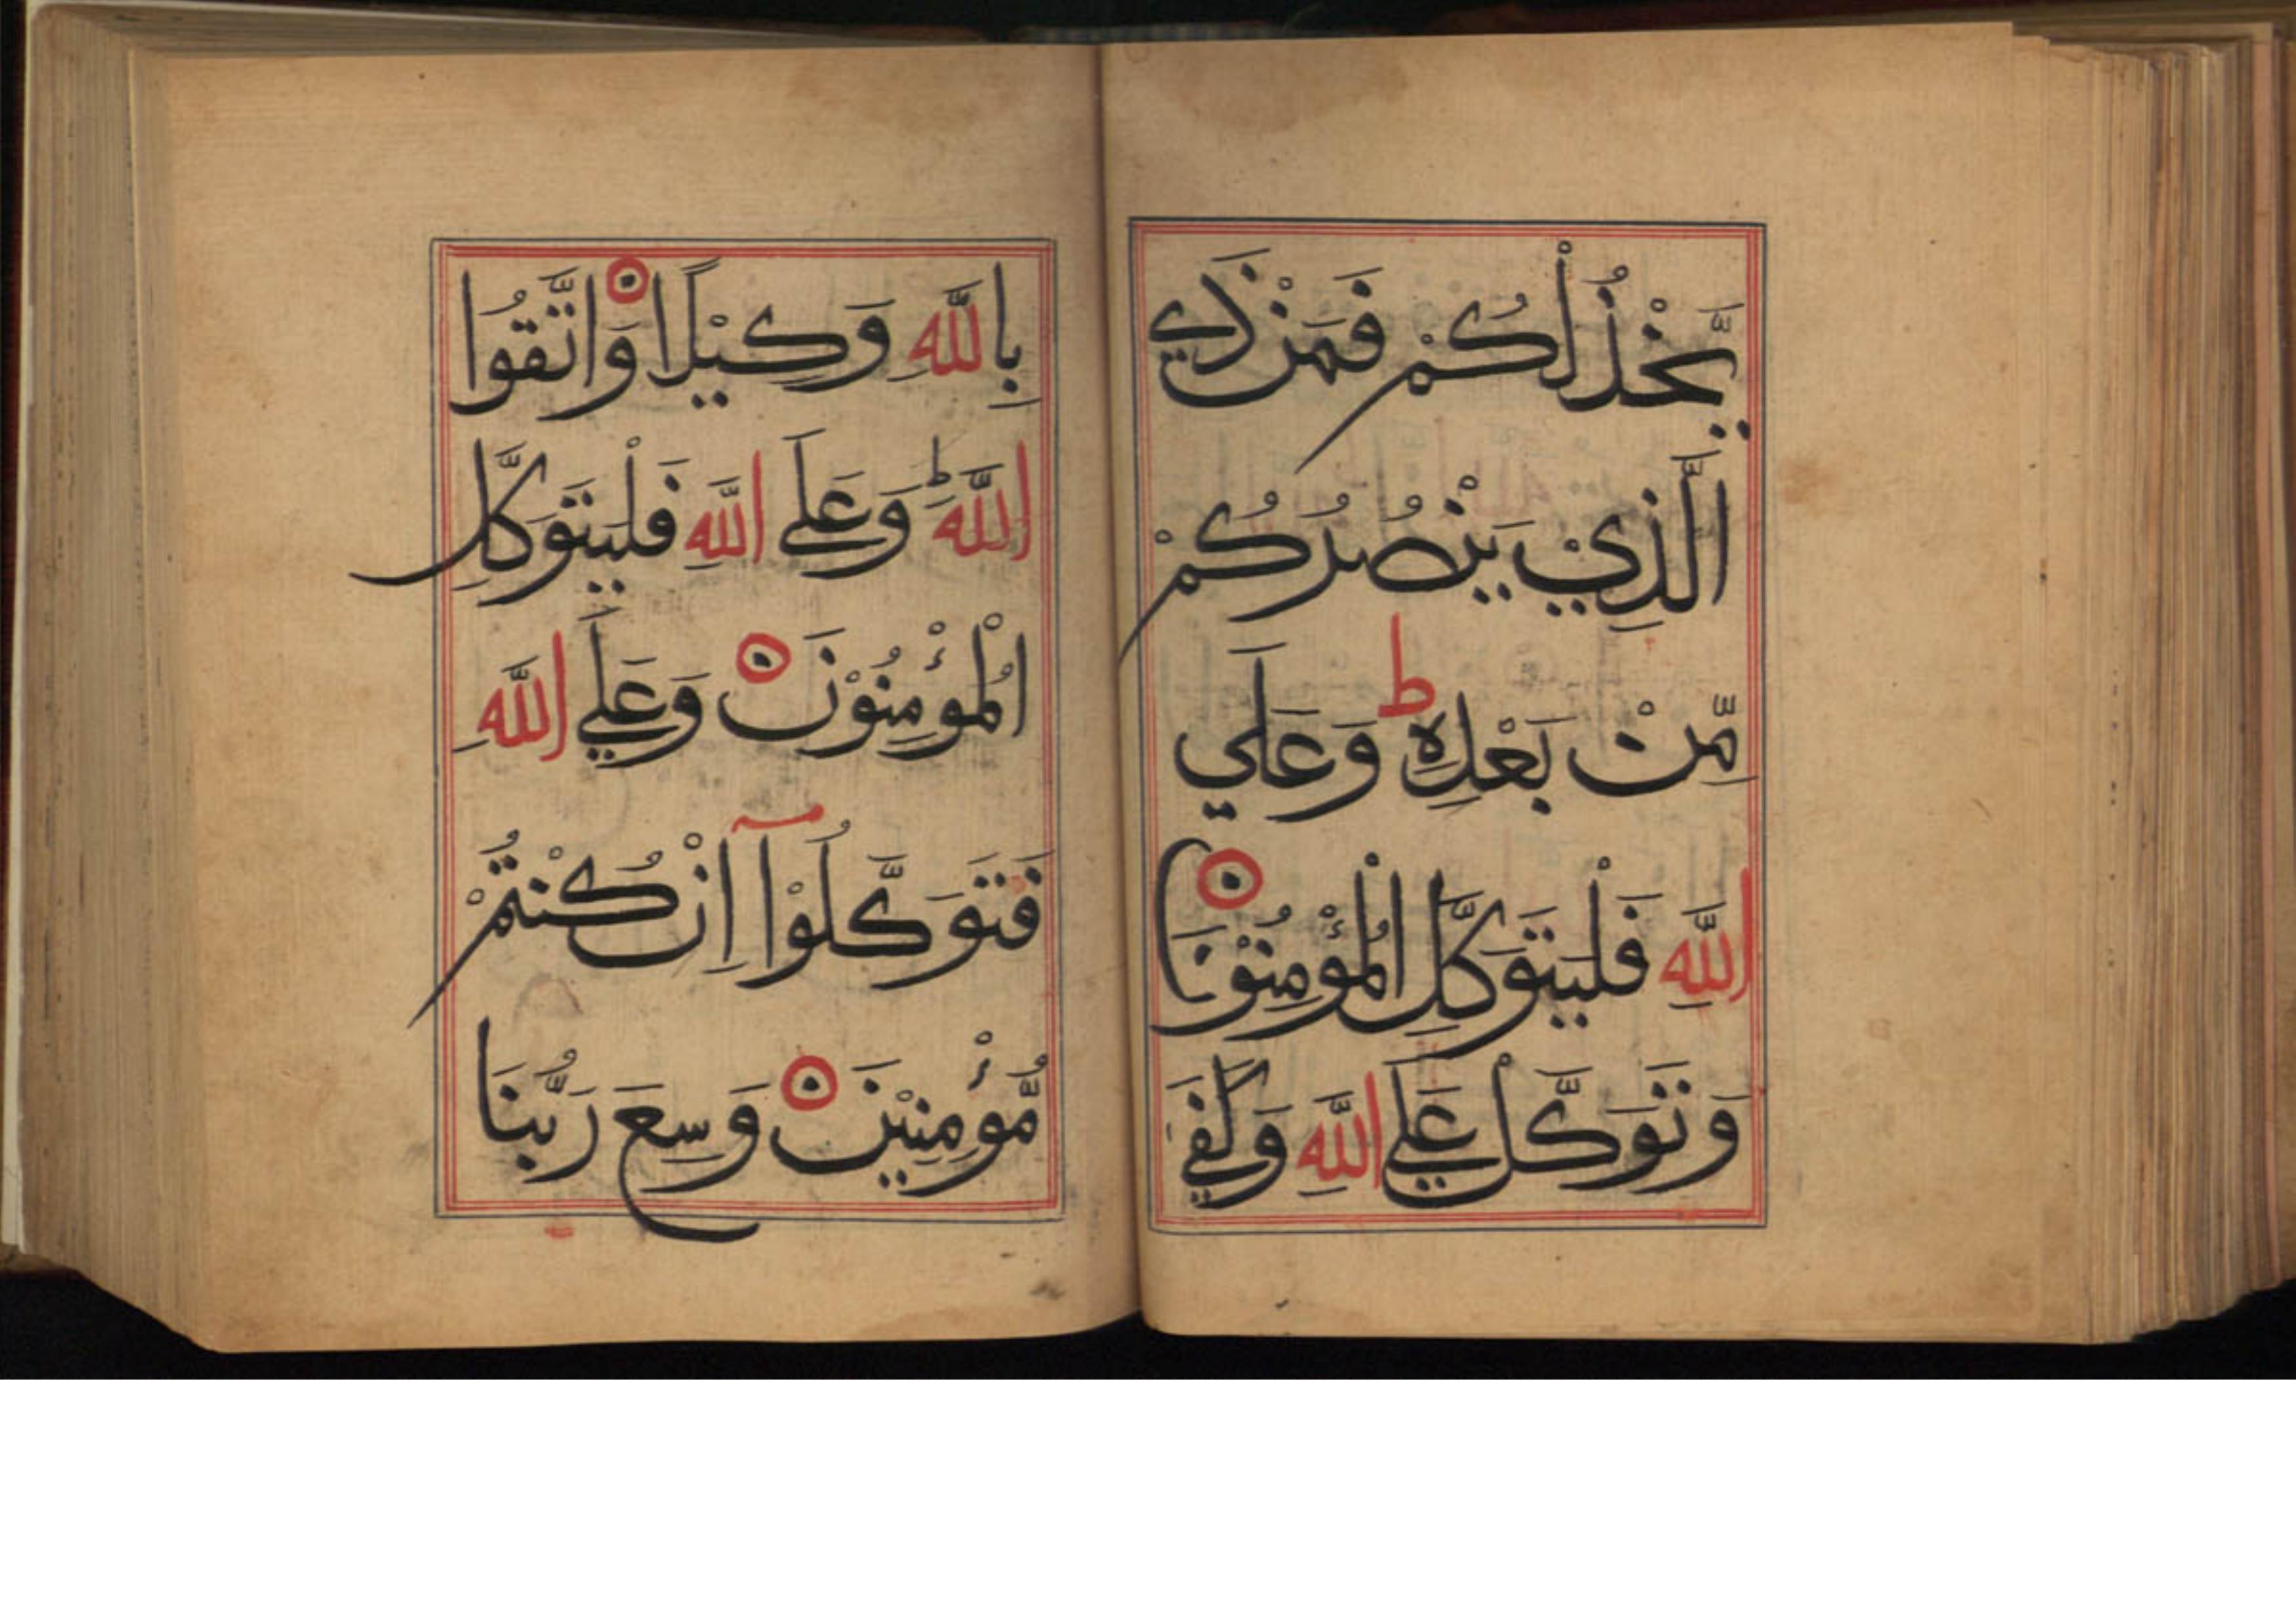 يَّخْذُلْكُمْ فَمَنْ ذَي
الَّذِيْ يَنْصُرُكُمْ
مِّنْ بَعْدِهِ ط وَعَلَي
اللّٰهِ فَلْيَتَوَكَّلِ الْمُؤْمِنُوْنَ
وَتَوَكَّلْ عَلَي اللّٰهِ وَكَفٰي
بِاللّٰهِ وَكِيْلًا وَاتَّقُوا
اللّٰهَ ط وَعَلَي اللّٰهِ فَلْيَتَوَكَّلِ
الْمُؤْمِنُوْنَ وَعَلَي اللّٰهِ
فَتَوَكَّلُوْآ اِنْ كُنْتُمْ
مُّؤْمِنِيْنَ وَسِعَ رَبُّنَا